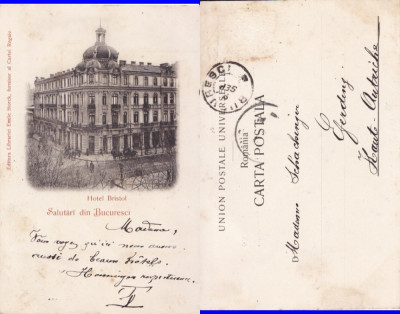 Editura Librariei Emile Storck, furnisor al Curtei Regale
Hotel Bristol
Salutări din Bucuresci
Madame,
Vous voyez qu'ici nous avons
aussi de beaux hôtels.
Hommages respectueux
UNION POSTALE UNIVERSELLE
România
CARTA POSTALA
BUCURESCI
Madame
Gerding
Haute Autriche